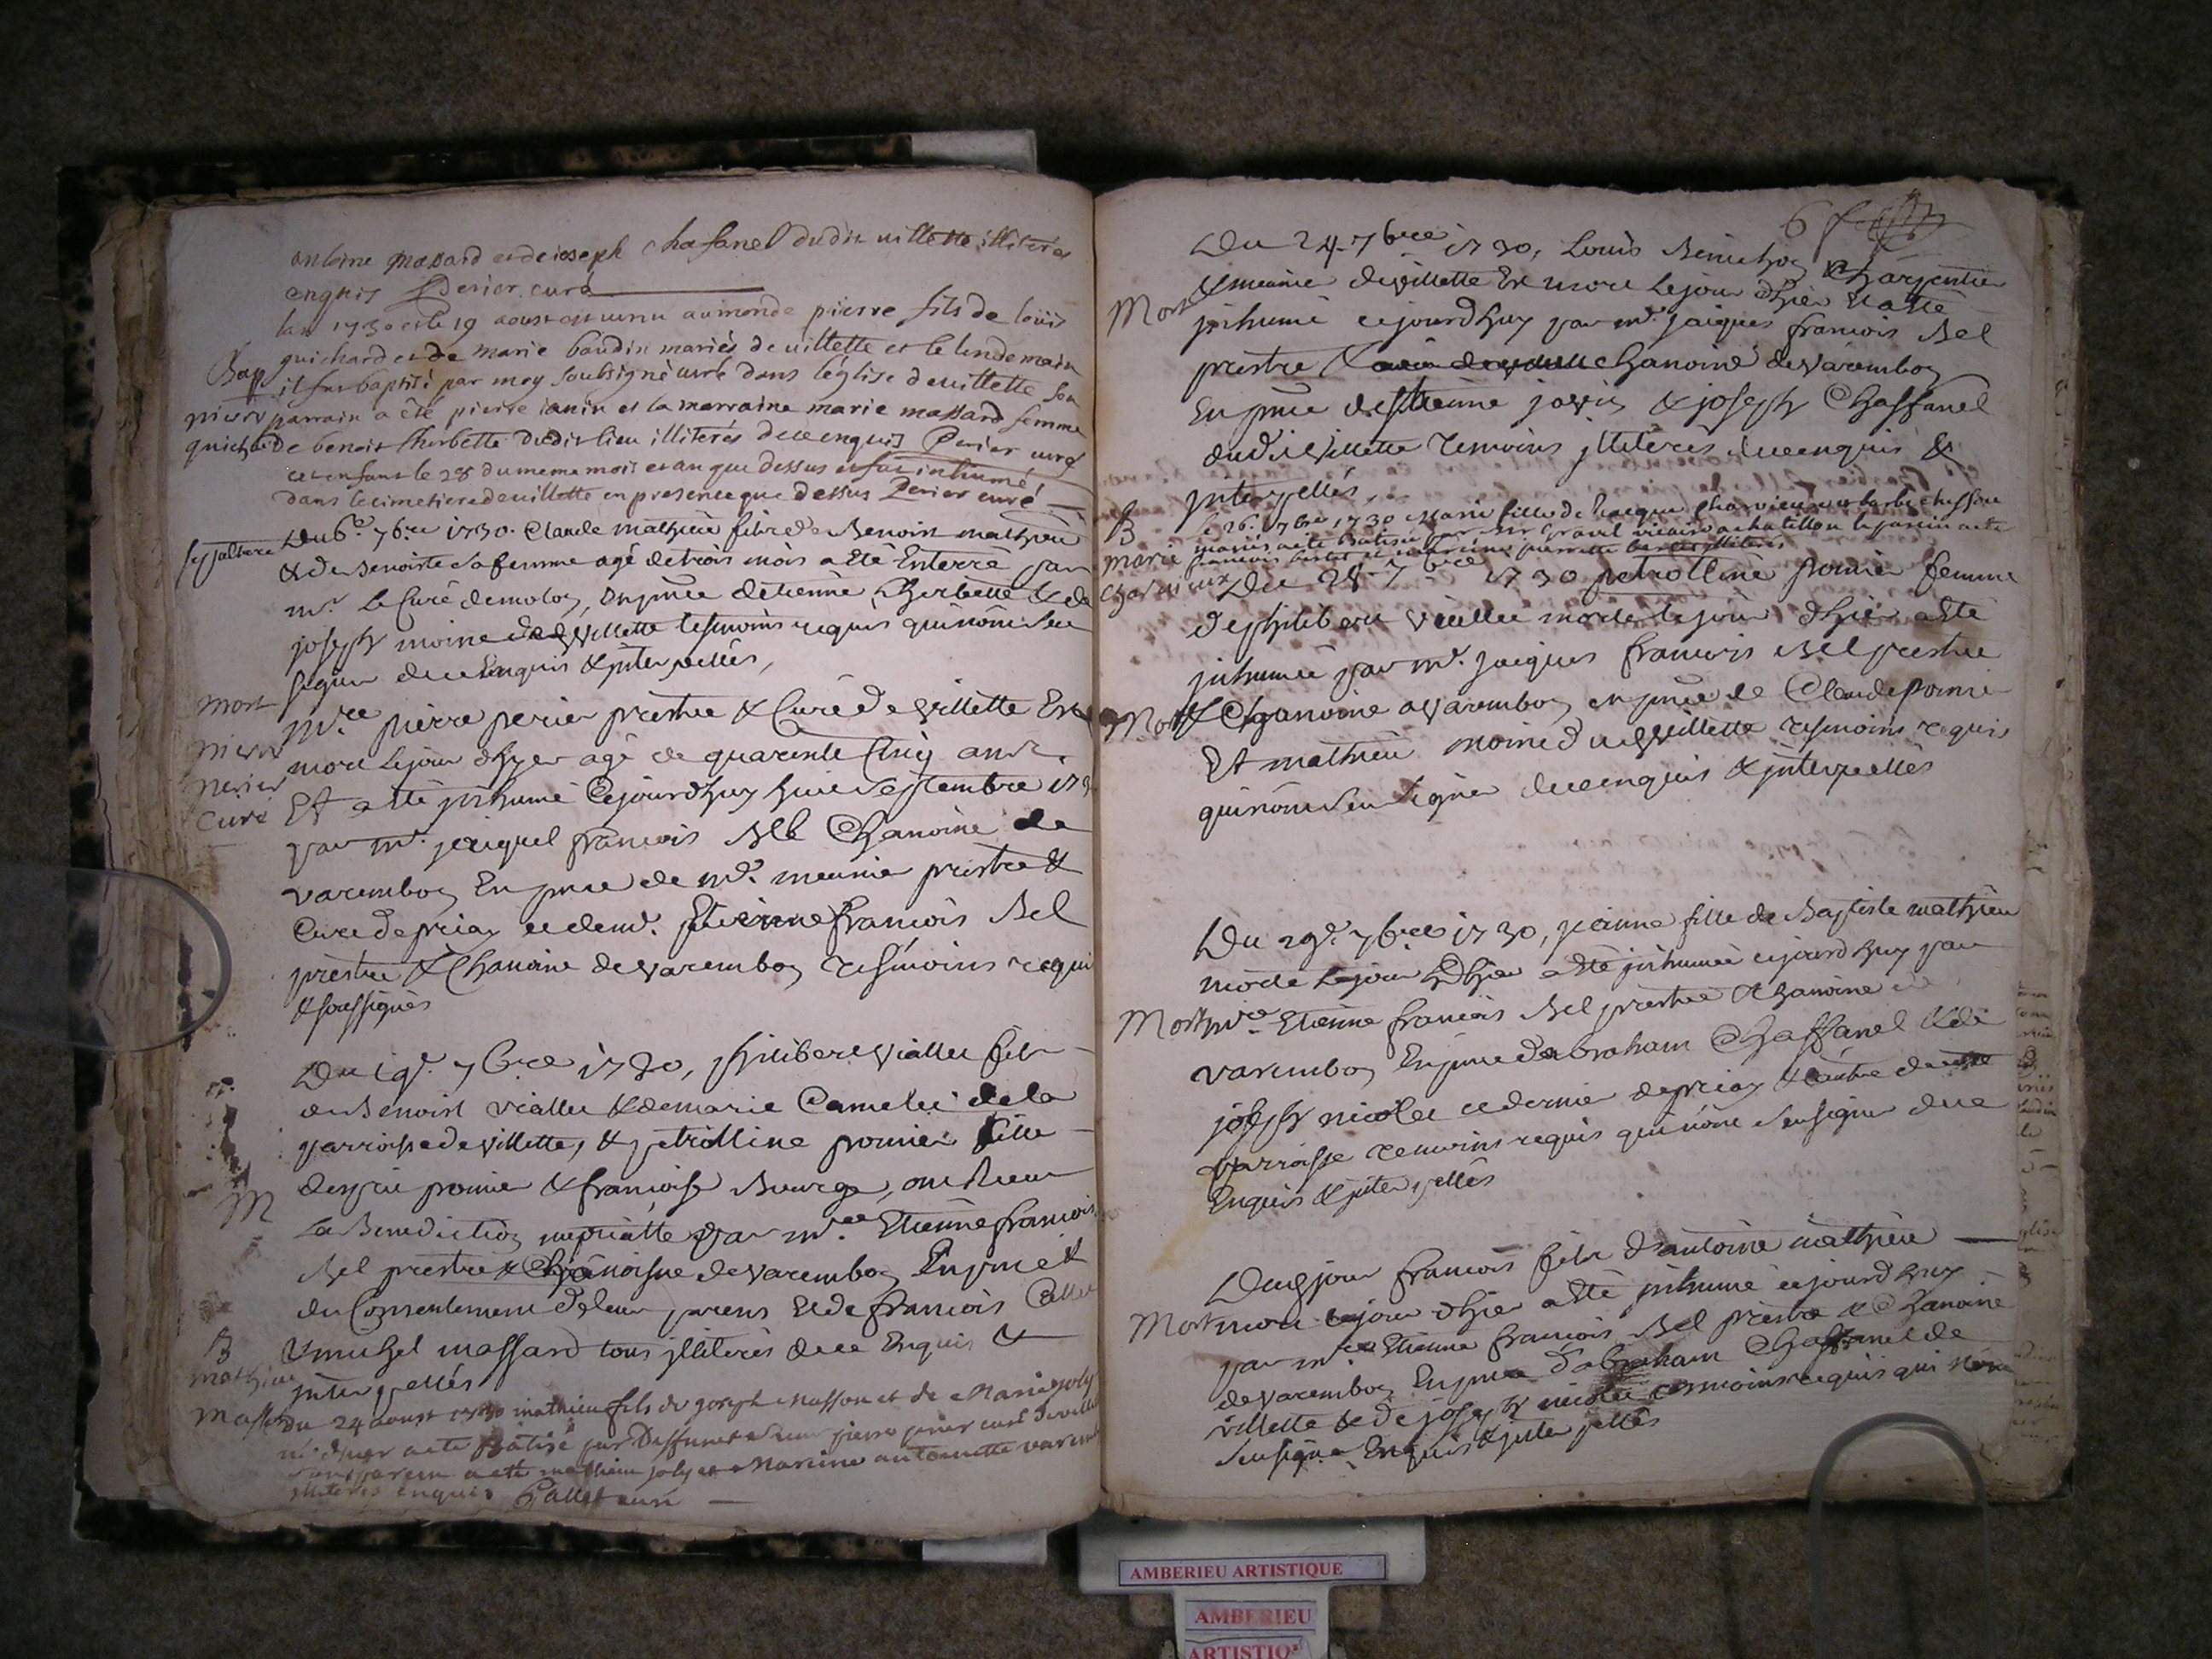 antoine massard et de ioseph chafanel dudit villette illiteres
enquis Perier curé
lan 1730 et le 19 aoust est venu au monde pierre fils de loüis
guichard et de marie baudin mariés de villette et le lendemain
Bap il fut baptisé par moy soubsigné curé dans l'église de villette son
pierre parrain a été pierre ianin et la marraine marie massard femme
guichard de benoit Cherbette dudit lieu illiterés de ce enquis Perier curé
cet enfant le 28 du meme mois et an que dessus at fut inhumé
dans le cimetiere de villette en presence que dessus Perier curé
sepulture Du 6e 7bre 1730. Claude mathieu fils de Benoist mathieu
& de Benoiste sa femme agé de trois mois a été Enterré par
mr. le Curé de molon, en pnce detienne Cherbette & de
joseph moine de villette tesmoins requis qui nont sceu
signer de ce Enquis & interpellés,
mort
pierre
perier
curé
Mre pierre perier prestre & Curé de villette Est
mort le jour dhyer agé de quarente Cinq ans
Et a été inhumé Cejourdhuy huit Septembre 173
par mr. jacques francois Bel Chanoine de
varembon En pnce de mr. meunier prestre &
Curé de priay et de mr. Etienne francois Bel
prestre & Chanoine de varembon tesmoins requi
& soussignés
Du 19e. 7bre 1730, philibert viallet fils
de Benoist viallet & de marie Camelet de la
parroisse de villette, & petrolline pomier fille
M
de pomier & francoise Bourge, ont Receu
La Benediction nuptialle par mre Etienne francois
Bel prestre & Chanoine de varembon En pnce &
du Consentement de leur parens Et de francois
& michel massard tous illiterés de ce Enquis &
interpellés
B
mathieu
Masson
du 24 aoust 1730 mathieu fils de joseph Masson et de Marie joly
né dhier a eté Batisé par Deffunct pierre perier curé de villette
son parein a eté mathieu joly et Mareine antoinette
illiterés enquis Gallet curé
6
Du 24 7bre 1730, Louis Charpentier
Mort
& meunier de villette Est mort le jour dhier Et a été
inhumé cejourdhuy par mr. jacques francois Bel
prestre & chanoine de varembon
En pnce destienne janin & joseph Chaffanel
dudit villette temoins illiterés de ce enquis &
interpellés
B
marie
Charvieux
le 26 7bre 1730 Marie fille de Jacques Charvieux et barbe
mariés a eté Batisé par Mr Gravil vicaire a chatillon le parein a eté
francois et mareine pierrette illiterés
Du 28 7bre 1730 petrolline pomier femme
de philibert viallet morte le jour dhier a été
inhumée par mr. jacques francois Bel prestre
Mort & Chanoine a varembon en pnce de Claude pomier
Et mathieu moine de villette tesmoins requis
qui nont sceu signer de ce enquis & interpellés
Du 29e. 7bre 1730, jeanne fille de Baptiste mathieu
morte le jour Dhier a été inhumée cejourdhuy par
Mort mre Etienne francois Bel prestre Chanoine de
varembon En pnce dabraham Chaffanel & de
joseph nicolet ce dernier de priay & lautre de cette
parroisse temoins requis qui nont sceu signer de ce
Enquis & interpellés
Du jour francois fils dantoine mathieu
Mort mort le jour dhier a été inhumé cejourdhuy
par mre Etienne francois Bel prestre & Chanoine
de varembon En pnce d'abraham Chaffanel de
villette & de joseph nicolet tesmoins requis qui nont
sceu signer Enquis & interpellés
AMBERIEU ARTISTIQUE
AMBERIEU
ARTISTIQ